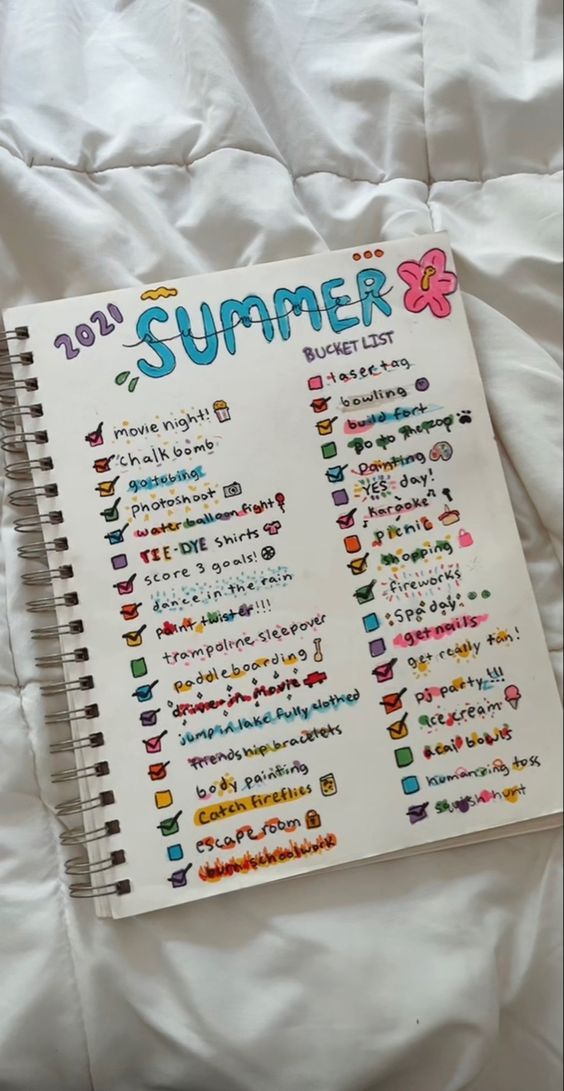 2021
SUMMER
BUCKET LIST
movie night!
chalk bomb
go tubing
photoshoot
water balloon fight
TIE-DYE shirts
score 3 goals!
dance in the rain
paint twister!!!
trampoline sleepover
paddleboarding
drive-in movie
jump in lake fully clothed
friendship bracelets
body painting
Catch fireflies
escape room
burn schoolwork
laser tag
bowling
build fort
go to the zoo
Painting
YES day!
Karaoke
picnic
shopping
fireworks
spa day
get nails
get really tan!
pj party!!!
ice cream
acai bowls
human ring toss
squish hunt